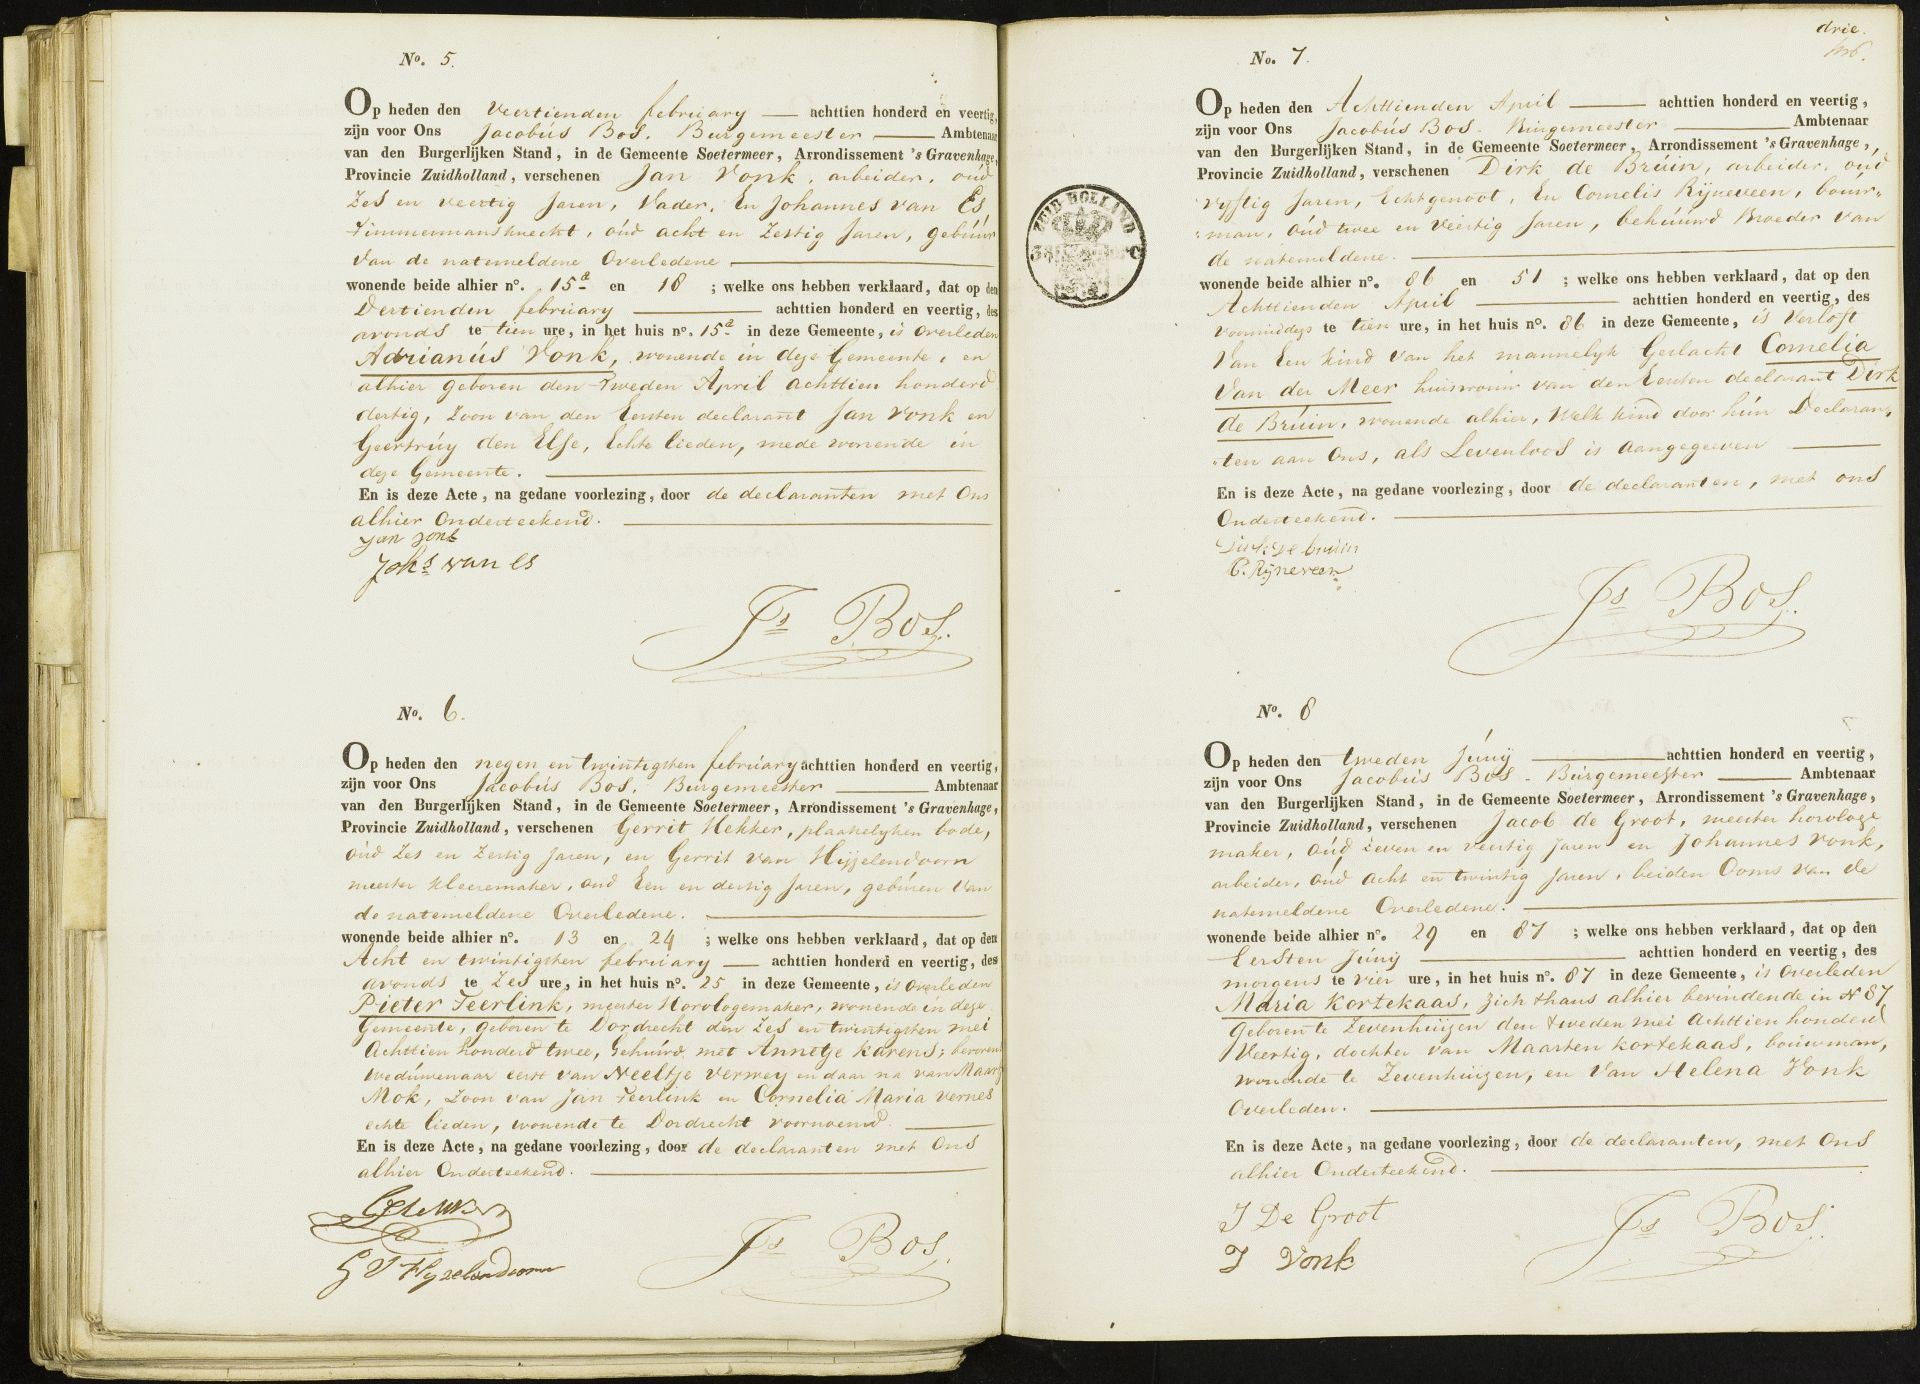 No. 5.
Op heden den Veertienden february achttien honderd en veertig,
zijn voor Ons Jacobús Bos. Burgemeester Ambtenaar
van den Burgerlijken Stand, in de Gemeente Soetermeer, Arrondissement 's Gravenhage,
Provincie Zuidholland, verschenen Jan Vonk, arbeider, oúd
Zes en veertig Jaren, Vader, En Johannes van Es
Timmermansknecht, oúd acht en Zestig Jaren, gebúúr
van de natemeldene Overledene
wonende beide alhier no. 15a en 18; welke ons hebben verklaard, dat op den
Dertienden february achttien honderd en veertig, des
avonds te tien ure, in het huis no. 15a in deze Gemeente, is Overleden
Adrianús Vonk, wonende in deze Gemeente, en
alhier geboren den Tweden April achttien honderd
dertig, Zoon van den Eersten declarant Jan Vonk en
Geertrúy den Else, Echte lieden, mede wonende in
deze Gemeente.
En is deze Acte, na gedane voorlezing, door de declaranten met Ons
alhier Onderteekend.
Jan vonk
Johs van Es
Js Bos.
No. 6.
Op heden den negen en twintigsten february achttien honderd en veertig,
zijn voor Ons Jacobús Bos, Burgemeester Ambtenaar
van den Burgerlijken Stand, in de Gemeente Soetermeer, Arrondissement 's Gravenhage,
Provincie Zuidholland, verschenen Gerrit Hekker, plaatselyken bode,
oúd Zes en Zestig Jaren, en Gerrit van Hijzelendoorn
meester kleeremaker, oud Een en dertig Jaren, gebúren van
de natemeldene Overledene.
wonende beide alhier no. 13 en 24; welke ons hebben verklaard, dat op den
Acht en twintigsten february achttien honderd en veertig, des
avonds te Zes ure, in het huis no. 25 in deze Gemeente, is Overleden
Pieter Teerlink, meester Horologemaker, wonende in deze
Gemeente, geboren te Dordrecht den Zes en twintigsten mei
Achttien honderd twee, Gehúwd met Annetje Karens; bevorens
wedúwenaar eerst van Neeltje Verwey en daar na van Maar
Mok, Zoon van Jan Teerlink en Cornelia Maria Vernes
echte lieden, wonende te Dordrecht voornoemd.
En is deze Acte, na gedane voorlezing, door de declaranten met Ons
alhier Onderteekend.
G V Hyzelendoorn
Js Bos.
drie.
No. 7.
Op heden den Achttienden April achttien honderd en veertig,
zijn voor Ons Jacobús Bos. Burgemeester Ambtenaar
van den Burgerlijken Stand, in de Gemeente Soetermeer, Arrondissement 's Gravenhage,
Provincie Zuidholland, verschenen Dirk de Brúin, arbeider, oúd
vyftig Jaren, Echtgenoot, En Cornelis Rijneveen, boúw-
man, oúd twee en Veertig Jaren, behúúwd Broeder van
de natemeldene.
wonende beide alhier no. 86 en 51; welke ons hebben verklaard, dat op den
Achttienden April achttien honderd en veertig, des
Voormiddags te tien ure, in het huis no. 86 in deze Gemeente, is Verlost
Van Een kind van het mannelyk Geslacht Cornelia
Van der Meer huisvrouw van den Eersten declarant Dirk
de Brúin, wonende alhier, Welk kind door hún Declaran-
ten aan Ons, als Levenloos is aangegeven
En is deze Acte, na gedane voorlezing, door de declaranten, met ons
Onderteekend.
Dirk De bruin
C. Rijneveen
Js Bos.
ZUID HOLLAND
No. 8
Op heden den tweden Júnij achttien honderd en veertig,
zijn voor Ons Jacobús Bos. Búrgemeester Ambtenaar
van den Burgerlijken Stand, in de Gemeente Soetermeer, Arrondissement 's Gravenhage,
Provincie Zuidholland, verschenen Jacob de Groot, meester horologe
maker, oúd zeven en veertig Jaren en Johannes Vonk,
arbeider, oúd acht en twintig Jaren, beiden Ooms van de
natemeldene Overledene.
wonende beide alhier no. 29 en 87; welke ons hebben verklaard, dat op den
Eersten Júnij achttien honderd en veertig, des
morgens te vier ure, in het huis no. 87 in deze Gemeente, is Overleden
Maria Kortekaas, zich thans alhier bevindende in N 87
geboren te Zevenhuizen den tweden mei Achttien honderd
Veertig, dochter van Maarten Kortekaas, boúwman,
wonende te Zevenhuizen, en Van Helena Vonk
Overleden.
En is deze Acte, na gedane voorlezing, door de declaranten, met Ons
alhier Onderteekend.
J De Groot
J Vonk
Js Bos.